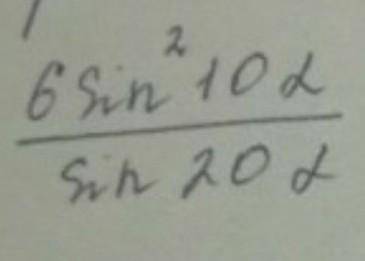 6 sin² 10 α
sin 20 α